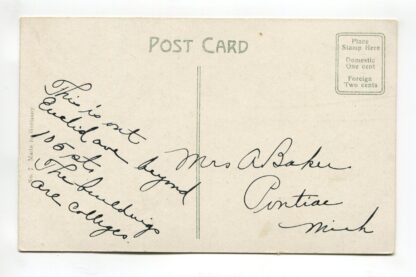 POST CARD
Place
Stamp Here
Domestic
One cent
Foreign
Two cents
This is out
Euclid ave beyond
105 sts.
The buildings
are colleges.
Mrs A Baker
Pontiac
Mich